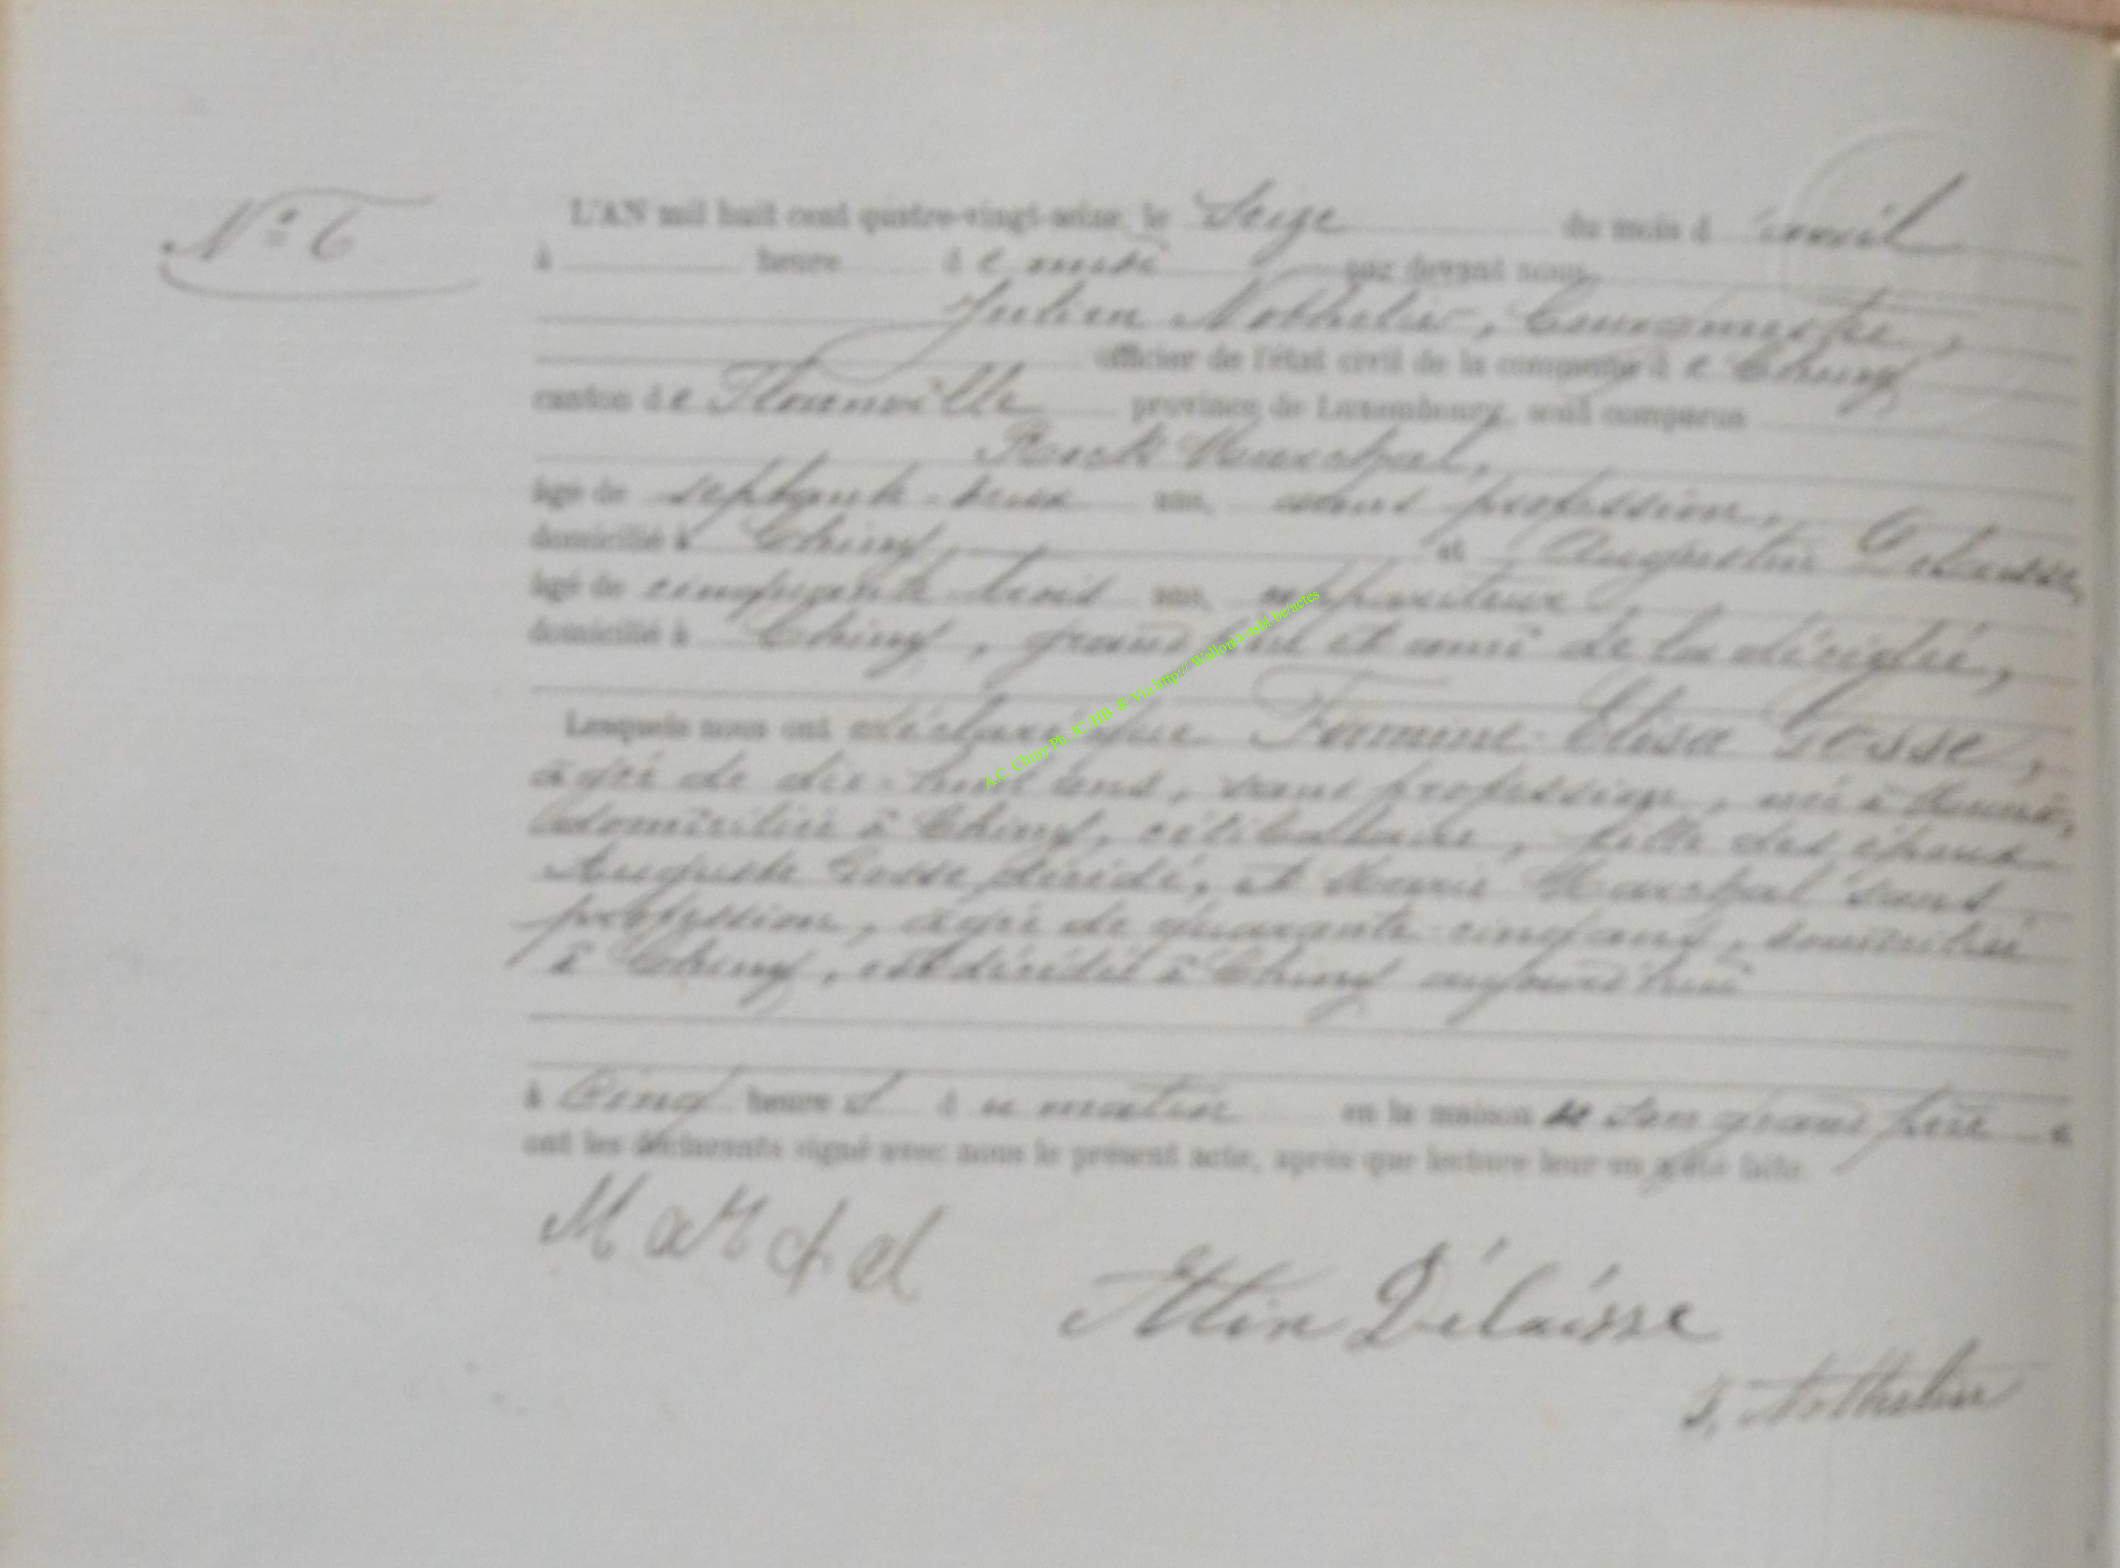 N° 6
L'AN mil huit cent quatre-vingt-seize, le Seize du mois d'avril
à heure de midi par devant nous
Julien Nothelier, Bourgmestre,
officier de l'état civil de la commune de Chiny
canton de Florenville province de Luxembourg, sont comparus
Rock Maréchal,
âgé de septante-deux ans, sans profession,
domicilié à Chiny et Augustin Delaisse,
âgé de cinquante trois ans, appariteur,
domicilié à Chiny, grand père et ami de la décédée,
Lesquels nous ont déclaré que Firmine Elisa Gosse,
âgée de dix-huit ans, sans profession, née à
domiciliée à Chiny, célibataire, fille des époux
Auguste Gosse décédé, et Marie Maréchal sans
profession, âgée de quarante cinq ans, domiciliée
à Chiny, est décédée à Chiny aujourd'hui
à Cinq heures du matin en la maison de son grand père et
ont les déclarants signé avec nous le présent acte, après que lecture leur en a été faite.
Delaisse
J. Nothelier
A.C. Chiny Ph. K. HB & Via http://Wallonia-asbl.be/actes